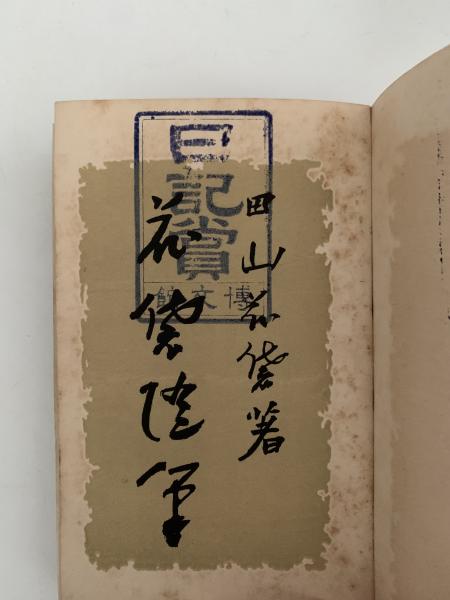 田山花袋著
花袋随筆
日記賞
博文館